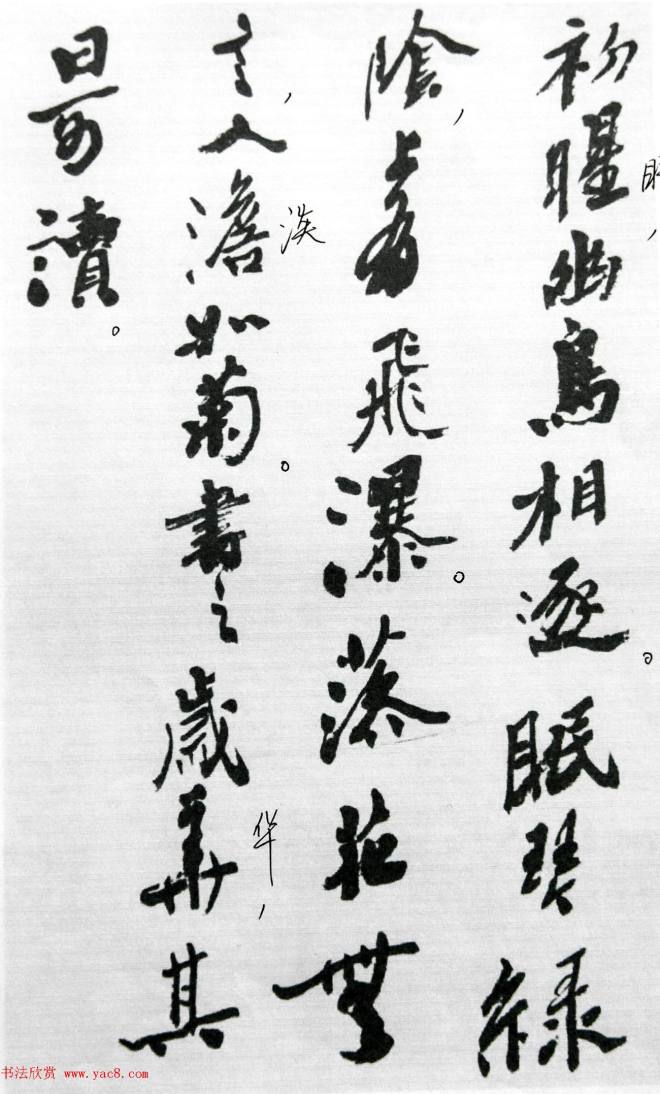 初暒幽鳥相逐。眠琴綠
陰,上有飛瀑。落花無
言,人澹如菊。書之歲華,其
淡
华
曰可瀆。
书法欣赏 www.yac8.com